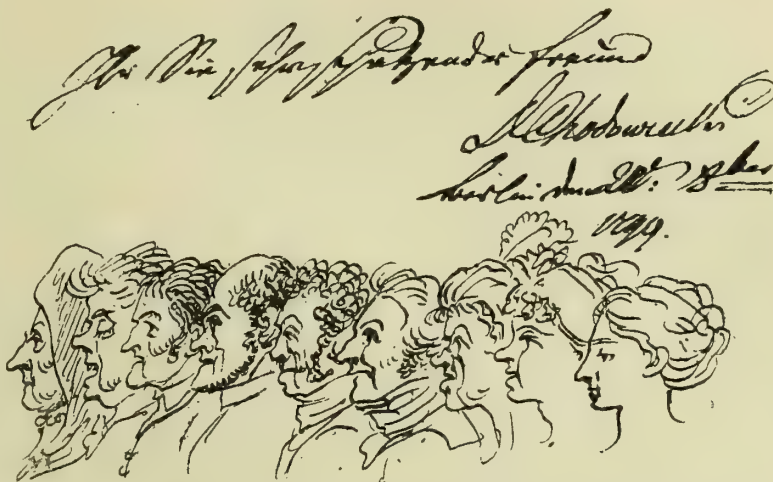 Ihr Sie sehr schätzender Freund
D Chodowiecki
Berlin 8ber
1799.